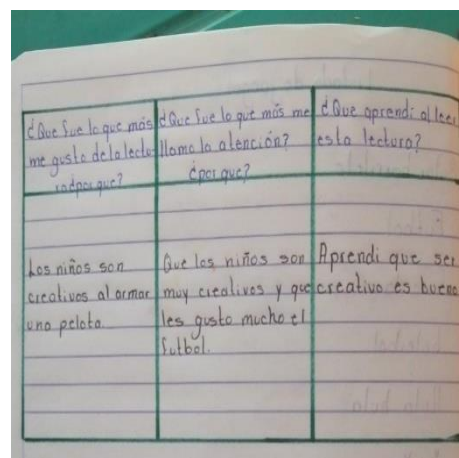 ¿Que fue lo que más
me gusto de la lectu
ra ¿por que?
¿Que fue lo que más me
llamo la atención?
¿por que?
¿Que aprendi al leer
esta lectura?
Los niños son
creativos al armar
una pelota.
Que los niños son
muy creativos y que
les gusta mucho el
futbol.
Aprendi que ser
creativo es bueno